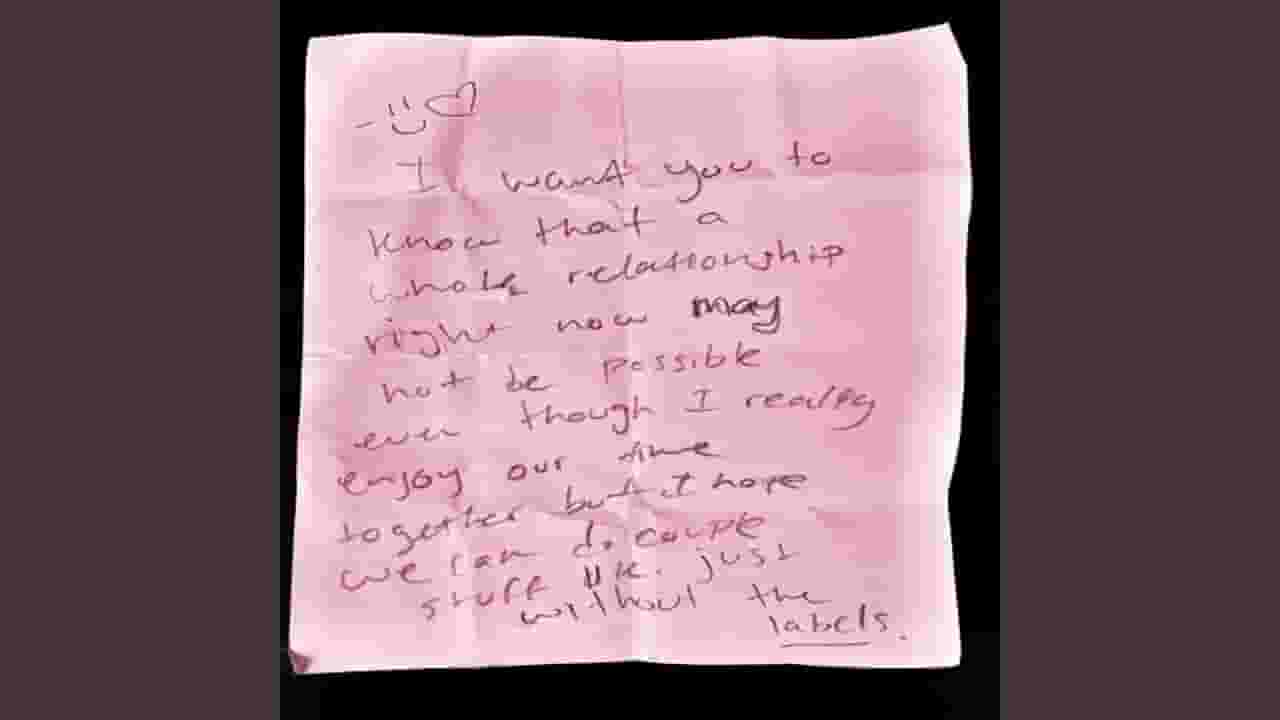 - :) ♡
I want you to
know that a
whole relationship
right now may
not be possible
even though I really
enjoy our time
together but I hope
we can do couple
stuff like. just
without the
labels.